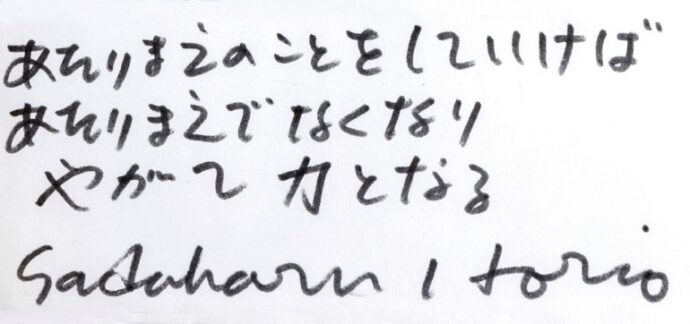 あたりまえのことをしていけば
あたりまえでなくなり
やがて力となる
Sadaharu Itorio